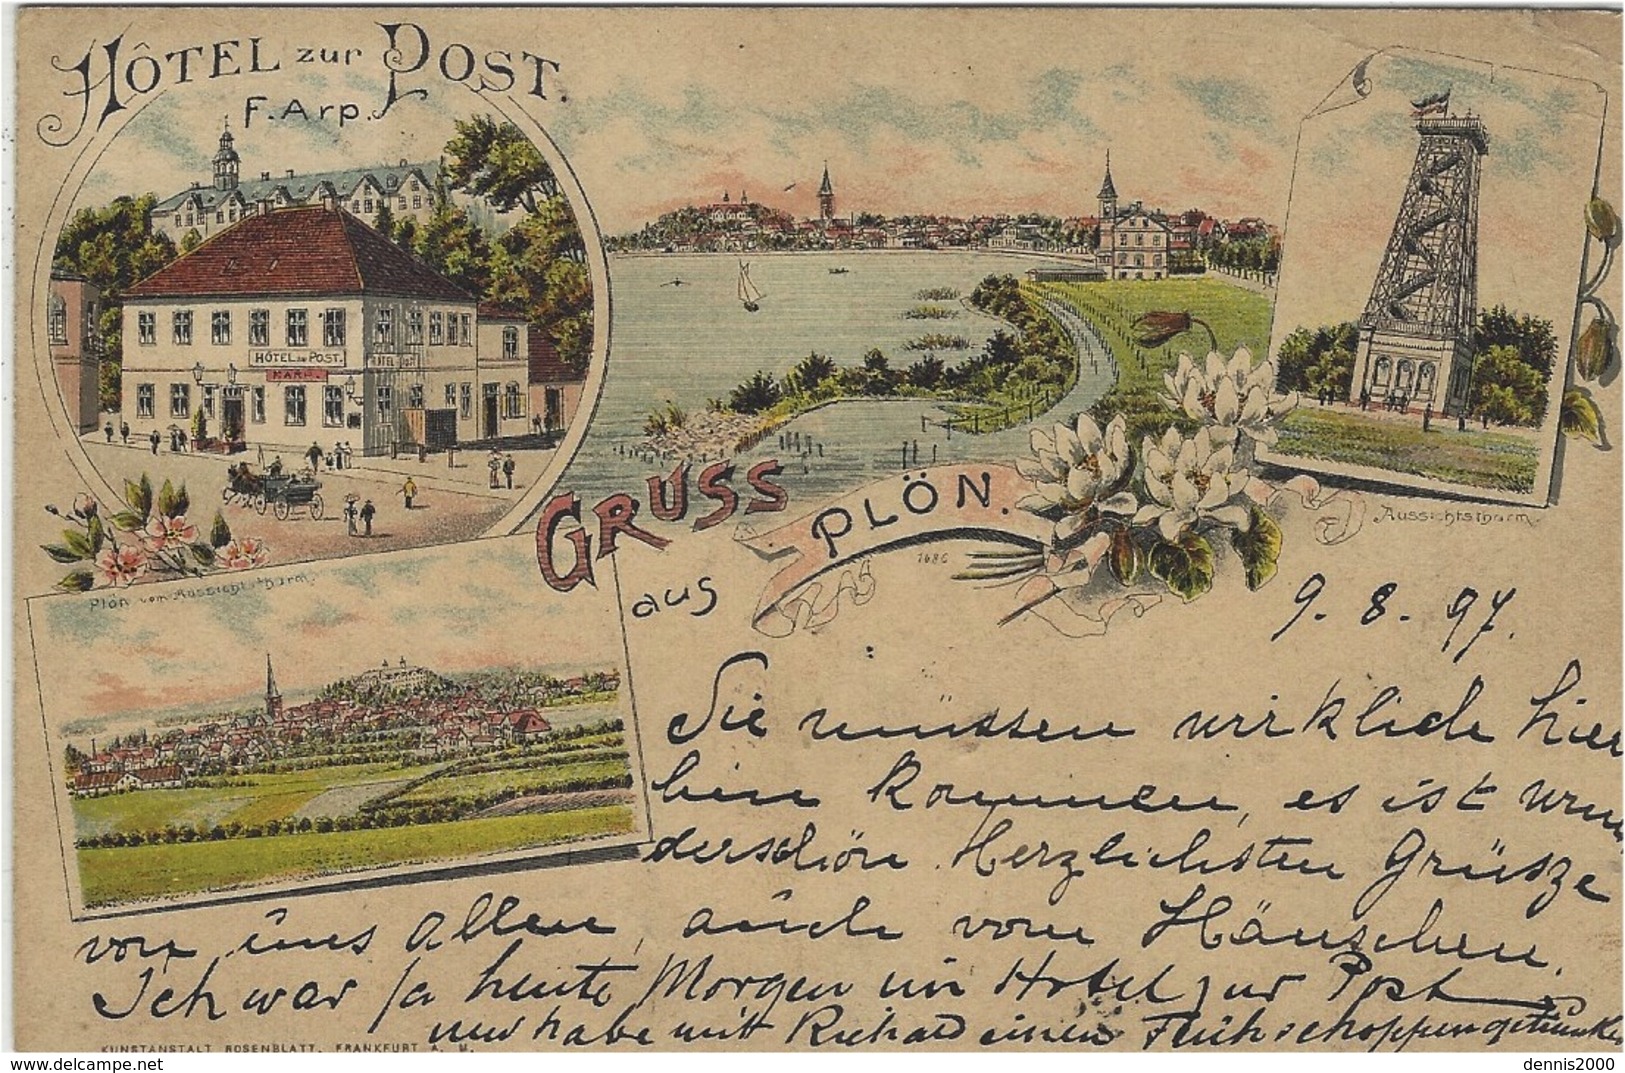 HÔTEL zur POST.
F. Arp.
HÔTEL zur POST.
HOTEL POST
GRUSS
aus
PLÖN.
1686
Aussichtsthurm.
Plön vom Aussichtsthurm.
9. 8. 97.
Sie müssen wirklich hier
hin kommen, es ist wun
derschön. Herzlichsten Grüsze
von uns allen, auch vom Hänschen.
Ich war ja heute Morgen im Hotel zur Post
und habe mit Richard einen Frühschoppen getrunken
KUNSTANSTALT ROSENBLATT, FRANKFURT A. M.
delcampe.net
dennis2000